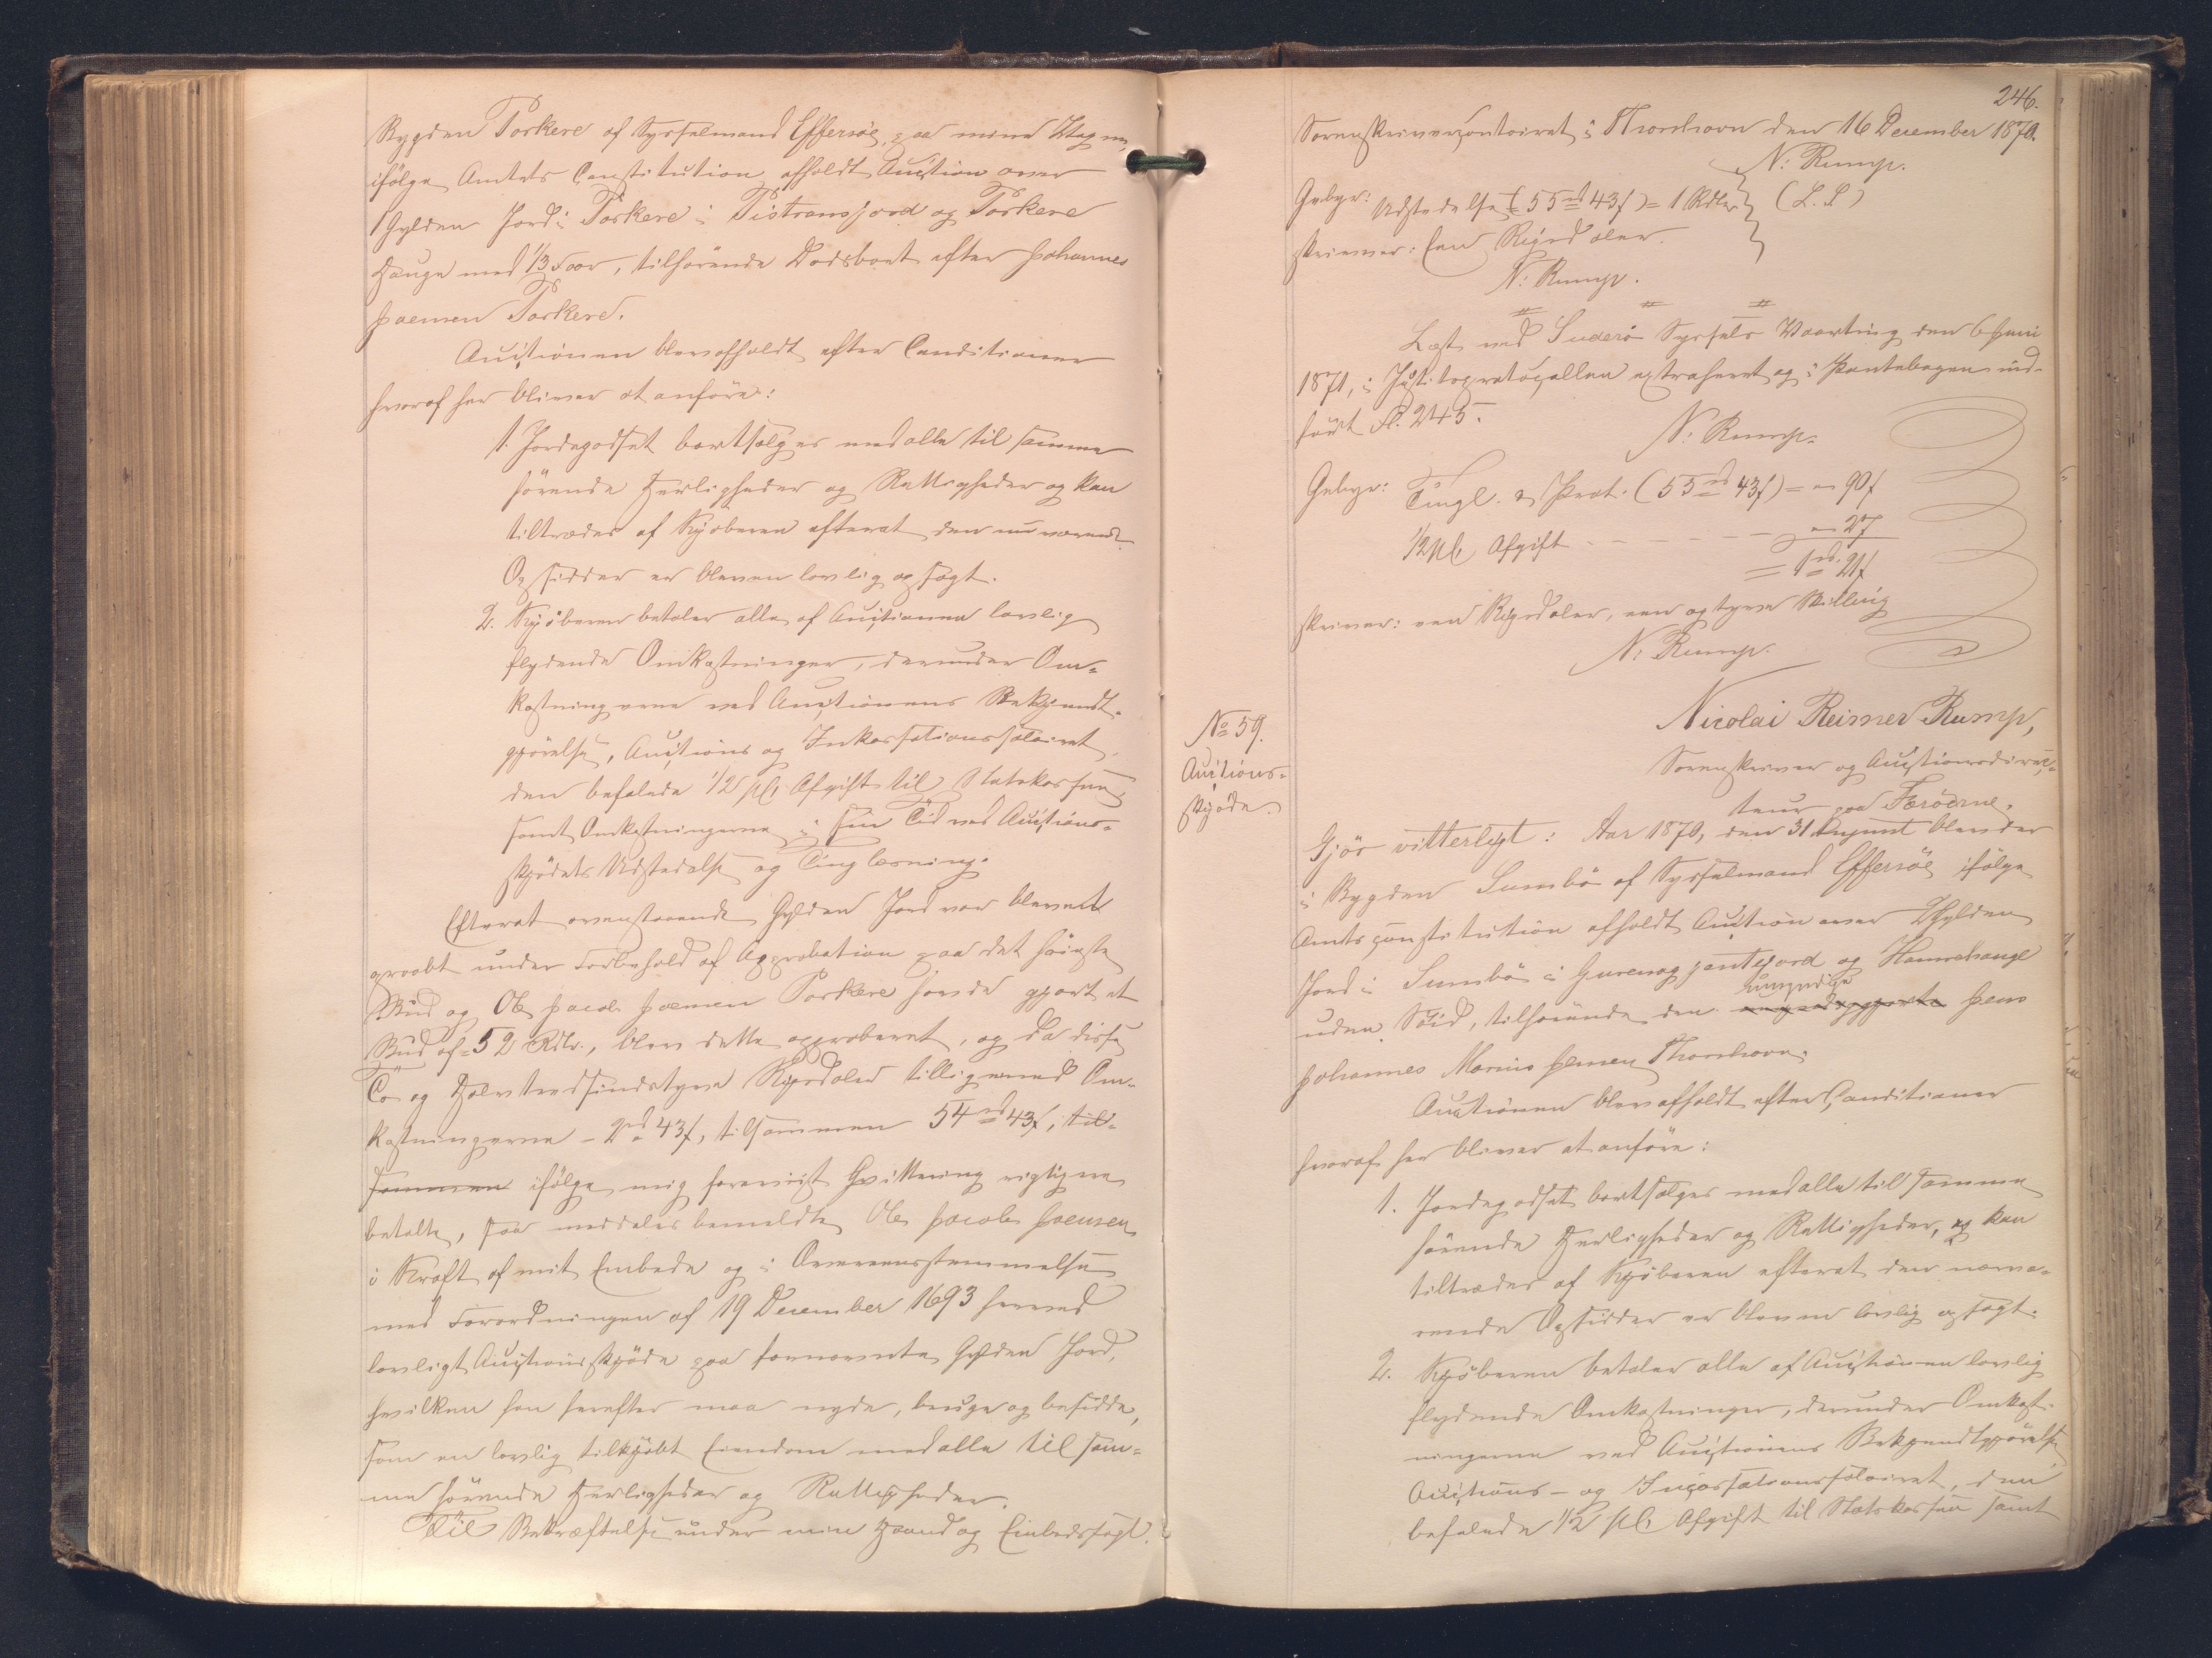 Bygden Porkere af Sysselmand Effersøe, paa mine Vegne,
ifölge Amtets Constitution afholdt Auction over
1 Gylden Jord i Porkere i Pistransjord og Porkere
Hauge med 1/3 Foer, tilhörende Dödsboet efter Johannes
Joensen Porkere.
Auctionen blev afholdt efter Conditioner
hvoraf her bliver at anföre:
1. Jordegodset bortsælges med alle til samme
hörende Herligheder og Rettigheder og kan
tiltrædes af Kjöberen efterat den nuværende
Opsidder er bleven lovlig opsagt.
2. Kjöberen betaler alle af Auctionen lovlig
flydende Omkostninger, derunder Om-
kostningerne ved Auctionens Bekjendt-
gjörelse, Auctions og Inkassationssalairet,
den befalede 1/2 pCt Afgift til Statskassen,
samt Omkostningerne i sin Tid ved Auctions-
skjödets Udstedelse og Tinglæsning.
Efterat ovenstaaende Gylden Jord var blevet
opraabt under Forbehold af Approbation paa det höieste
Bud og Ole Jacob Joensen Porkere havde gjort et
Bud af 52 Rdlr., blev dette approberet, og da disse
To og Halvtredsindstyve Rigsdaler tilligemed Om-
kostningerne - 2 rd 43 f, tilsammen 54 rd 43 f, til-
sammen ifölge mig foreviist Qvittering rigtigen
betalte, saa meddeles bemeldte Ole Jacob Joensen
i Kraft af mit Embede og i Overeensstemmelse
med Forordningen af 19 December 1693 herved
lovligt Auctionsskjöde paa fornævnte Gylden Jord,
hvilken han herefter maa nyde, bruge og besidde,
som en lovlig tilkjöbt Eiendom med alle til sam-
me hörende Herligheder og Rettigheder.
Til Bekræftelse under min Haand og Embedssegl.
246.
Sorenskrivercontoiret i Thorshavn den 16 December 1870.
N: Rump.
(L. S)
Gebyr: Udstedelse (55 rd 43 f) = 1 Rdlr
skriver: een Rigsdaler.
N: Rump.
Læst ved Suderö Syssels Vaarting den 6 Juni
1871, i Justitsprotocollen extraheret og i Pantebogen ind-
fört Fl. 245.
N: Rump.
Gebyr: Tingl. & Prot. (55 rd 43 f) = " 90 f
1/2 pCt Afgift - - - - - - " 27
= 1 rd 21 f
skriver: een Rigsdaler, een og tyve Skilling
N: Rump.
No 59.
Auctions-
skjöde.
Nicolai Reimer Rump,
Sorenskriver og Auctionsdirec-
teur paa Færöerne,
Gjör vitterligt: Aar 1870, den 31 August blev der
i Bygden Sumbö af Sysselmand Effersöe ifölge
Amtsconstitution afholdt Auction over 2 Gylden
Jord i Sumbö i jord og Hamrehauge
uden Söid, tilhörende den umyndige Jens
Johannes Marius Jensen Thorshavn.
Auctionen blev afholdt efter Conditioner
hvoraf her bliver at anföre:
1. Jordegodset bortsælges med alle til samme
hörende Herligheder og Rettigheder, og kan
tiltrædes af Kjöberen efterat den nuvæ-
rende Opsidder er bleven lovlig opsagt.
2. Kjöberen betaler alle af Auctionen lovlig
flydende Omkostninger, derunder Omkost-
ningerne ved Auctionens Bekjendtgjörelse
Auctions- og Incassationssalairet, den
befalede 1/2 pCt Afgift til Statskassen samt